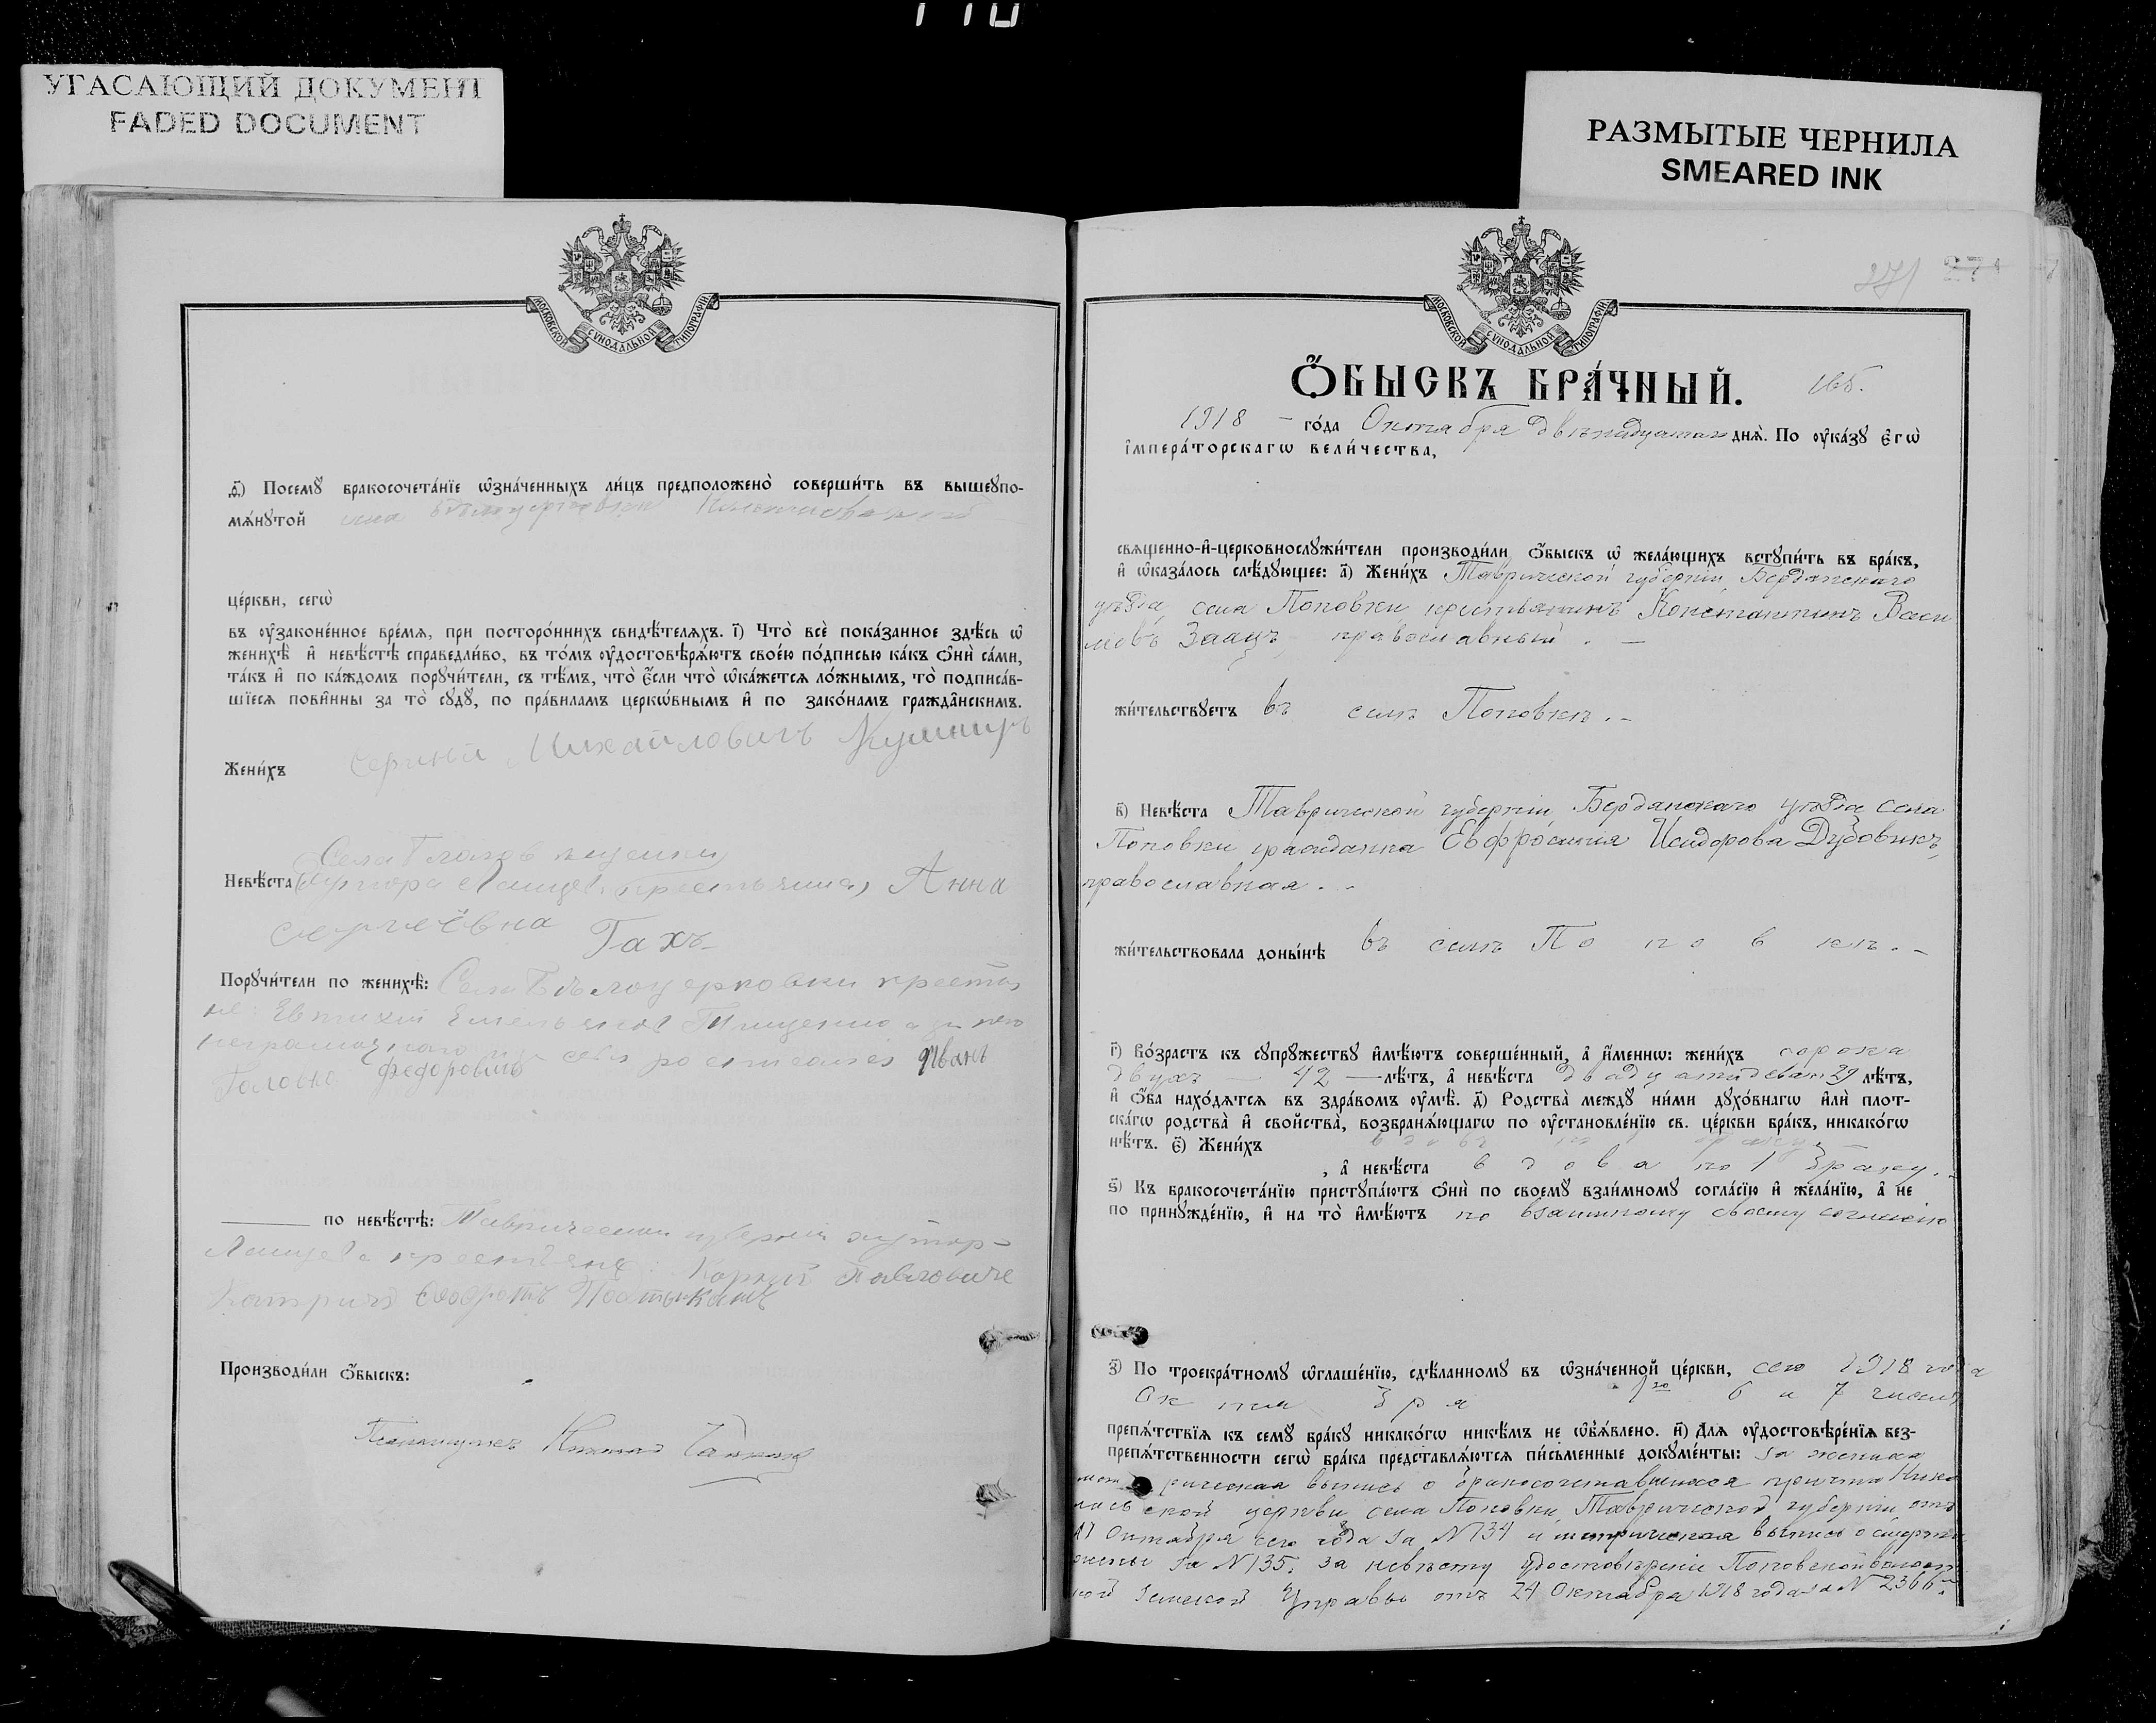 УГАСАЮЩИЙ ДОКУМЕНТ
FADED DOCUMENT
РАЗМЫТЫЕ ЧЕРНИЛА
SMEARED INK
МОСКОВСКОЙ СѴНОДАЛЬНОЙ ТИПОГРАФІИ
ѳ҃) Посемꙋ бракосочета́нїе ѡ҆зна́ченныхъ ли́цъ предположено̀ соверши́ть въ вышеꙋпо-
мѧ́нꙋтой
це́ркви, сегѡ̀
въ оу҆законе́нное вре́мѧ, при посторо́ннихъ свидѣ́телѧхъ. і҃) Что̀ всѐ пока́занное здѣ́сь ѡ҆
женихѣ̀ и҆ невѣ́стѣ справедли́во, въ то́мъ оу҆достовѣрѧ́ютъ свое́ю по́дписью ка́къ ѻ҆нѝ са́ми,
та́къ и҆ по ка́ждомъ порꙋчи́тели, съ тѣ́мъ, что̀ є҆́сли что̀ ѡ҆ка́жетсѧ ло́жнымъ, то̀ подписа́в-
шїесѧ пови́нны за то̀ сꙋдꙋ̀, по пра́виламъ церкѡ́внымъ и҆ по зако́намъ гражда̂нскимъ.
Жени́хъ Сергѣй Михайловичъ Кушниръ
Села
Невѣ́ста Хутора Анна
Сергеёвна Гахъ
Порꙋчи́тели по женихѣ̀: Села Бѣлоцерковки крестья
не: Евтихій Емельянов Тищенко а за него
неграмотнаго росписался Иванъ
Головко Федоровичъ
по невѣ́стѣ: Таврической губерніи хутор
крестьяне: Корней Павловиче
Производи́ли ѻ҆́быскъ:
МОСКОВСКОЙ СѴНОДАЛЬНОЙ ТИПОГРАФІИ
271
Ѻ҆́БЫСКЪ БРА́ЧНЫЙ. 165.
1918 – го́да Октября двѣнадцатаго днѧ̀. По оу҆ка́зꙋ є҆гѡ̀
і҆мпера́торскагѡ вели́чества,
свѧще́нно-и҆-церковнослꙋжи́тели производи́ли ѻ҆́быскъ ѡ҆ жела́ющихъ встꙋпи́ть въ бра́къ,
и҆ ѡ҆каза́лось слѣ́дꙋющее: а҃) Жени́хъ Таврической губерніи, Бердянскаго
уѣзда, села Поповки, крестьянинъ Константинъ Васи
льевъ Заацъ, православный. –
жи́тельствꙋетъ въ селѣ Поповкѣ. –
в҃) Невѣ́ста Таврической губерніи, Бердянскаго уѣзда села
Поповки гражданка Евфросинія Исидорова Дубовикъ,
православная. –
жи́тельствовала доны́нѣ въ селѣ Поповкѣ. –
г҃) Во́зрастъ къ сꙋпрꙋ́жествꙋ и҆мѣ́ютъ соверше́нный, а҆ и҆́меннѡ: жени́хъ сорока
двухъ – 42 – лѣ́тъ, а҆ невѣ́ста двадцатидевяти 29 лѣ́тъ,
и҆ ѻ҆́ба нахо́дѧтсѧ въ здра́вомъ оу҆мѣ̀. д҃) Родства̀ междꙋ ни́ми дꙋхо́внагѡ и҆лѝ плот-
ска́гѡ родства̀ и҆ свойства̀, возбранѧ́ющагѡ по оу҆становле́нїю св. це́ркви бра́къ, никако́гѡ
нѣ́тъ. є҃) Жени́хъ вдовъ по 1 браку –
, а҆ невѣ́ста вдова по 1 браку. –
ѕ҃) Къ бракосочета́нїю пристꙋпа́ютъ ѻ҆нѝ по своемꙋ̀ взаи́мномꙋ согла́сїю и҆ жела́нїю, а҆ не
по принꙋжде́нїю, и҆ на то̀ и҆мѣ́ютъ по взаимному своему согласію
з҃) По троекра́тномꙋ ѡ҆глаше́нїю, сдѣ́ланномꙋ въ ѡ҆зна́ченной це́ркви, сего 1918 года
Октября 6 и 7 числа
препѧ́тствїѧ къ семꙋ̀ бра́кꙋ никако́гѡ никѣ́мъ не ѡ҆б̾ѧ́влено. и҃) Длѧ оу҆достовѣре́нїѧ без-
препѧ́тственности сегѡ̀ бра́ка представлѧ́ютсѧ пи́сьменные докꙋме́нты: за жениха
метрическая выпись о бракосочетавшихся причта Нико
лаевской церкви села Поповки, Таврической губерніи, отъ
Октября сего года за N 134 и метрическая выпись о смерти
жены за N 135. За невѣсту удостовѣреніе Поповской волост
ной Земской Управы отъ 24 Октября 1918 года за N 2366.